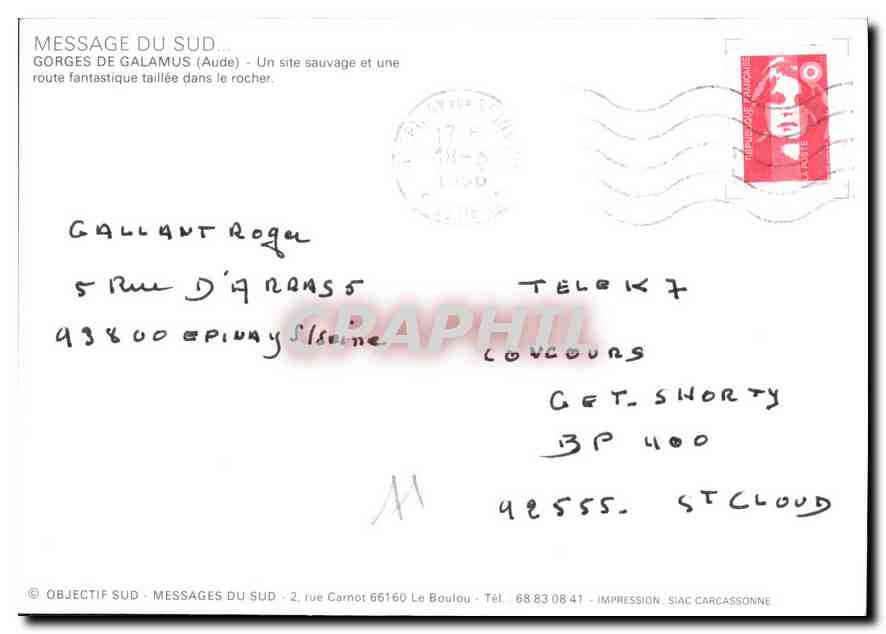 MESSAGE DU SUD...
GORGES DE GALAMUS (Aude) - Un site sauvage et une
route fantastique taillée dans le rocher.
REPUBLIQUE FRANÇAISE
LA POSTE
GALLANT Roger
5 Rue D'ARRAS 5
93800 EPINAY S/Seine
TELE K 7
CONCOURS
GET. SHORTY
BP 400
92555. ST CLOUD
CPAPHIL
© OBJECTIF SUD - MESSAGES DU SUD - 2, rue Carnot 66160 Le Boulou - Tél. : 68 83 08 41 - IMPRESSION : SIAC CARCASSONNE